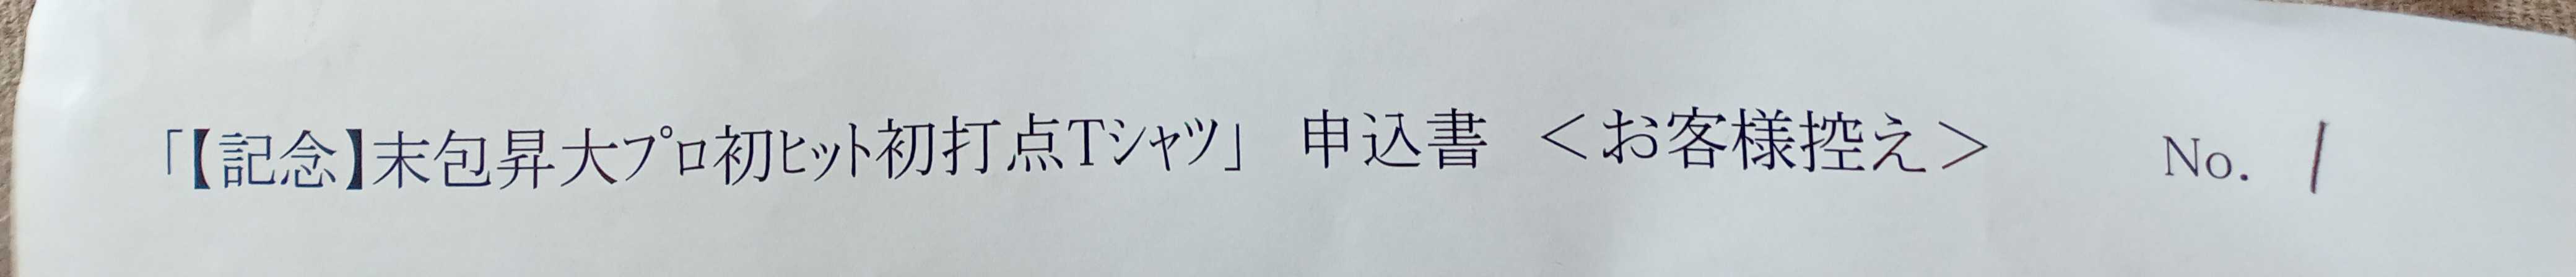 「【記念】末包昇大プロ初ヒット初打点Tシャツ」 申込書 ＜お客様控え＞ No. 1